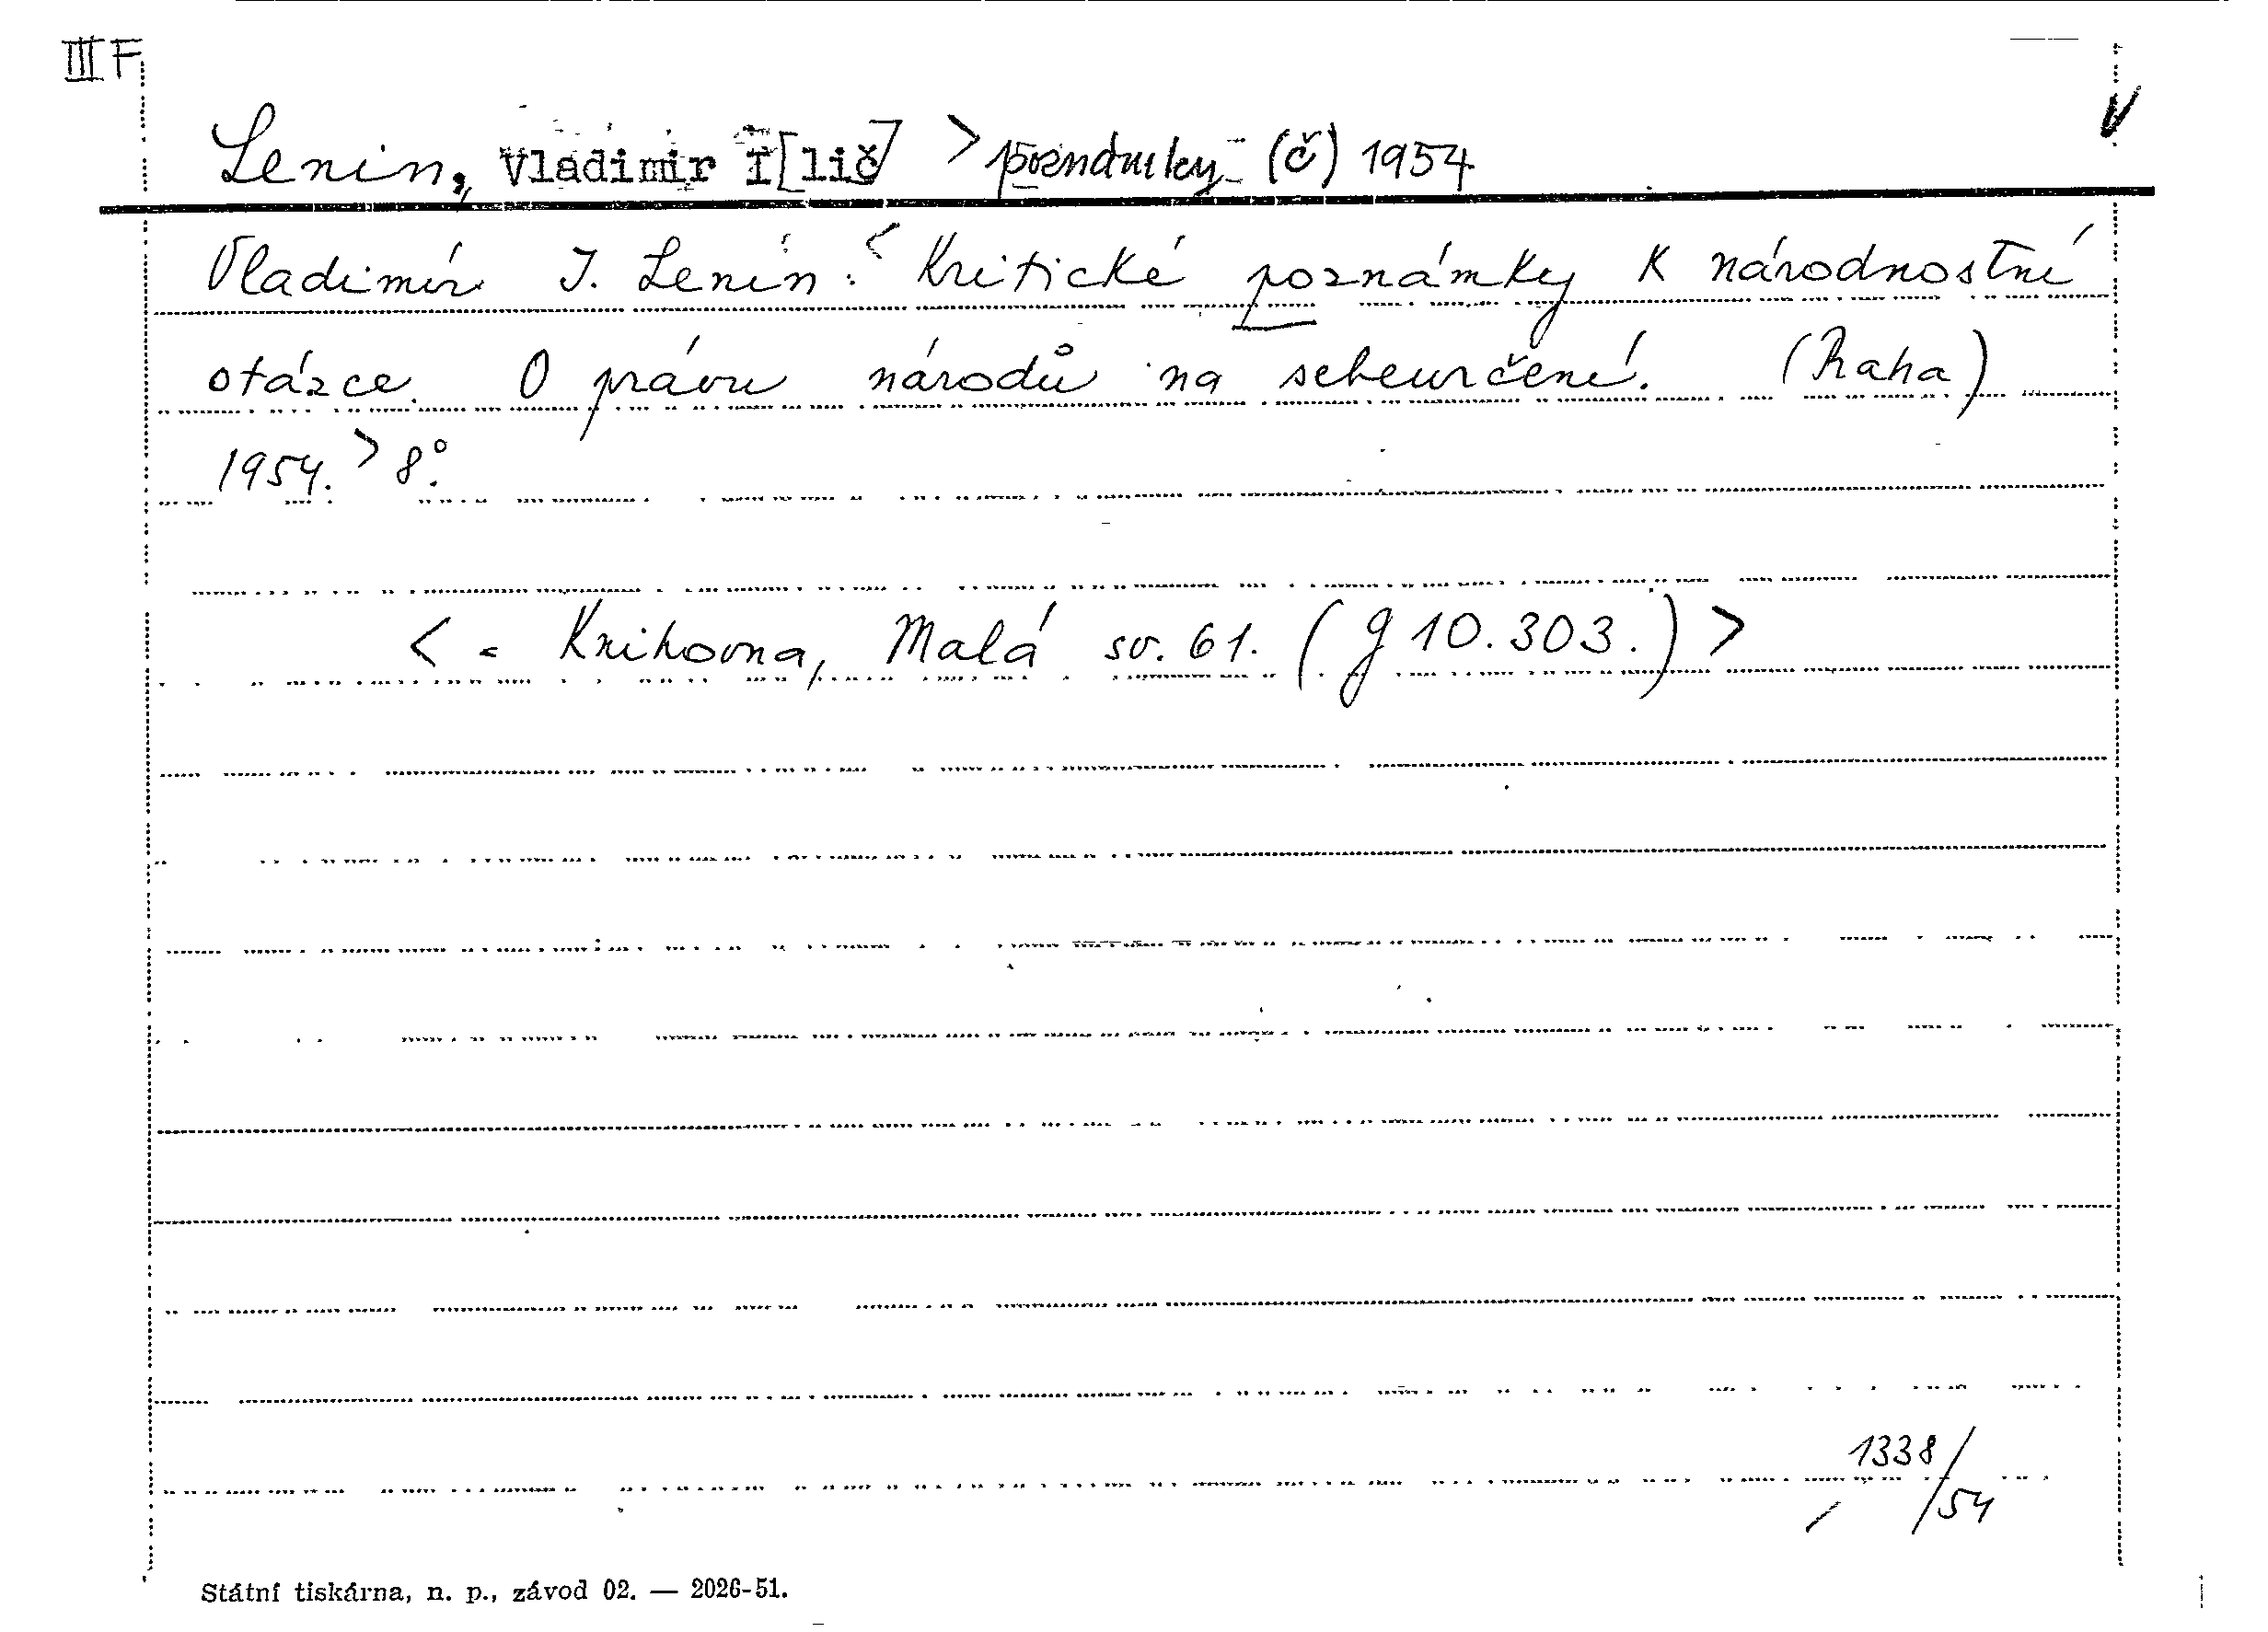 III F
Lenin, Vladimir I[lič] > poznámky (č) 1954
Vladimír I. Lenin: < Kritické poznámky k národnostní
otázce. O právu národů na sebeurčení. (Praha)
1954. > 8°.
< = Knihovna, Malá sv. 61. (g 10.303.) >
1338/
/54
Státní tiskárna, n. p., závod 02. — 2026-51.